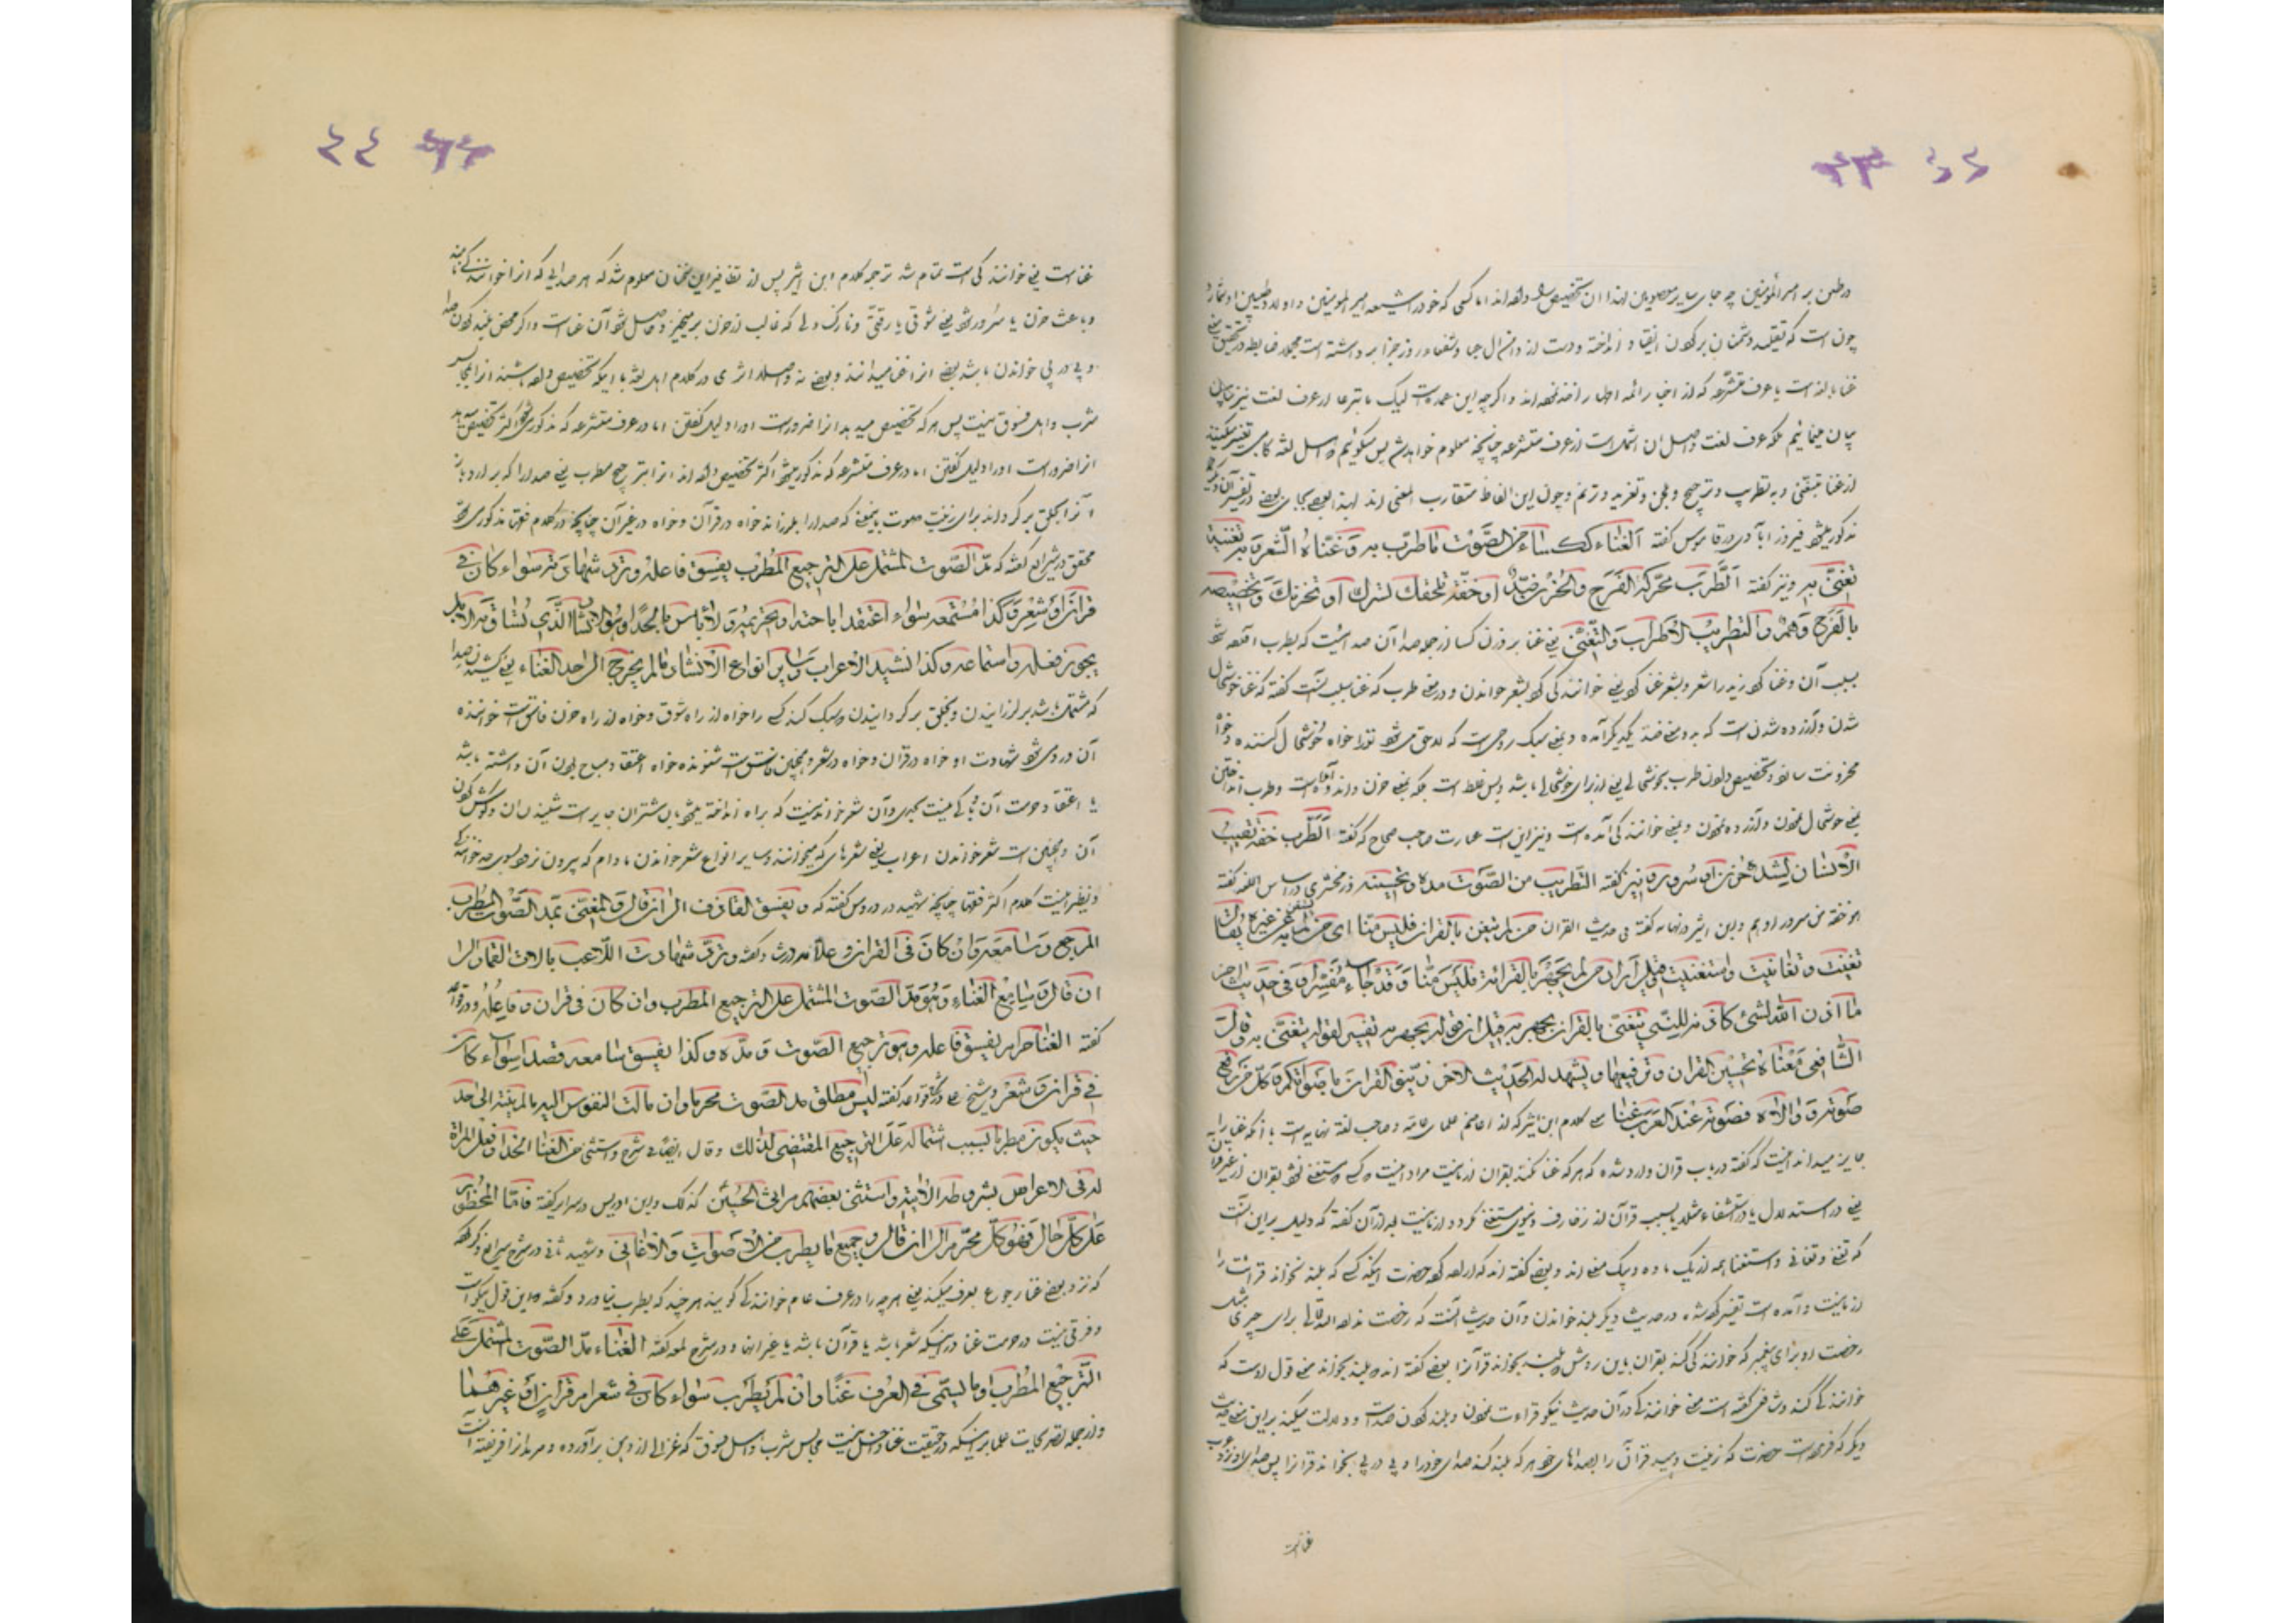 در طعن بر امیرالمؤمنین چه جای سایر معصومین لهذا آن تخصیص داده‌اند اما کسی که خود را شیعه امیرالمومنین و اولاد طیبین او شمارد
چون است که تقلید دشمنان بر گردن انداخته و دست از دامن آل
غنا یا لغت است یا عرف متشرعه که از اخبار ائمه اطهار اخذ نموده‌اند و اگرچه این عمده است لیک ما تبرعا از عرف لغت نیز
بیان مینمائیم بلکه عرف لغت و اصل آن اشمل است از عرف متشرعه چنانچه معلوم خواهد شد پس میگوئیم اهل لغة گاهی تفسیر میکنند
از غنا بتغنی و به تطریب و ترجیع و لحن و تغرید و ترنم و چون این الفاظ متقارب المعنی‌اند لهذا بعضی بجای بعضی در تفسیر آن
مذکور میشود فیروزآبادی در قاموس گفته الغناء ککساء من الصوت ما طرب به و غناه الشعر و به تغنیة
تغنی به و نیز گفته الطرب محرکة الفرح والحزن ضد او خفة تلحقک تسرک او تحزنک و تخصیصه
بالفرح وهم والتطریب الاطراب والتغنی یعنی غنا بر وزن کسا از جمله صدا آن صدائیست که بطرب آورده شود
بسبب آن و غنا کرد زید را شعر و بشعر غنا کرد یعنی خوانندگی کرد بشعر خواندن و در معنی طرب که غنا سبب آنست گفته که خوشحال
شدن و آزرده شدن است که به دو معنی ضد یکدیگر آمده و بمعنی سبک روحی است که لاحق میشود تو را خواه خوشحال کننده و خواه
محزونت سازد و تخصیص دادن طرب بخوشحالی یعنی از برای خوشحالی باشد و بس غلط است بلکه بمعنی حزن و اندوه آمده است و طرب
یعنی خوشحال نمودن و آزرده نمودن و بمعنی خوانندگی آمده است و نیز این است عبارت صاحب صحاح که گفته الطرب خفة تصیب
الانسان لشدة حزن او سرور و نیز گفته التطریب من الصوت مده و تحسینه و زمخشری در اساس اللغه گفته
هو خفة من سرور او هم و ابن اثیر در نهایه گفته فی حدیث القران من لم یتغن بالقران فلیس منا ای من لم یستغن به عن غیره یقال
تغنیت و تغانیت واستغنیت و قیل اراد من لم یجهر بالقرائة فلیس منا و قد جاء مفسرا فی حدیث اخر
ما اذن الله لشئ کاذنه للنبی یتغنی بالقران یجهر به قیل ان قوله یجهر به تفسیر لقوله یتغنی به و قال
الشافعی معناه تحسین القران و ترقیقها و یشهد له الحدیث الاخر زینوا القران باصواتکم و کل من رفع
صوته و والاه فصوته عند العرب غنا کلام ابن اثیر که از اعاظم علمای عامه و صاحب لغة نهایه است با آنکه غنا را
جایز میداند اینست که گفته در باب قران وارد شده که هر که غنا نکند بقران از ما نیست مراد اینست که کسی که مستغنی نشود بقران از غیر قران
یعنی در استدلال یا در استشفاء شاید بسبب قرآن از زخارف دنیوی مستغنی گردد از ما نیست بعد از آن گفته که دلیل بر این آنست
که تغنی و تغانی و استغنا همه از یک ماده و بیک معنی‌اند و بعضی گفته‌اند که اراده کرده حضرت اینکه کسی که بلند نخواند قرائت را
از ما نیست و آمده است تفسیر کرده شده در حدیث دیگر بلند خواندن و آن حدیث آنست که رخصت نداده الله تعالی برای چیزی مثل
رخصت او برای پیغمبر که خوانندگی کند بقران باین روش که بلند بخواند قرآنرا بعضی گفته‌اند که بلند بخواند معنی قول اوست که
خوانندگی کند و شافعی گفته است معنی خوانندگی در آن حدیث نیکو قراءت نمودن و بلند کردن صداست و دلالت میکند بر این معنی حدیث
دیگر که فرموده است حضرت که زینت دهید قرآن را بصداهای خود هر که بلند کند صدای خود را و پی در پی بخواند قرانرا پس صدای او نزد عرب
غناست
غناست یعنی خوانندگی است تمام شد ترجمه کلام ابن اثیر پس از تظافر این سخنان معلوم شد که هر صدایی که انرا خوانندگی نامند
و باعث حزن یا سرور شود یعنی شوقی یا رقتی و نازک دلی که غالب از حزن بر میخیزد حاصل شود آن غناست و اگر محض بلند کردن صدا
و پی در پی خواندن باشد بعضی انرا غنا میدانند و بعضی نه و اصلا اثری در کلام اهل لغة با اینکه تخصیص داده باشند انرا بمجالس
شرب و اهل فسوق نیست پس هر که تخصیص میدهد انرا ضرور است او را دلیل گفتن اما در عرف متشرعه که مذکور میشود اکثر تخصیص
انرا ضرور است او را دلیل گفتن اما در عرف متشرعه که مذکور میشود اکثر تخصیص داده‌اند انرا بترجیع مطرب یعنی صدا را که بر
آنرا بحلق بر گرداند برای زینت صوت بمعنی که صدا را بلرزاند خواه در قرآن و خواه در غیر آن چنانچه در کلام فقها مذکور میشود
محقق در شرایع گفته که مد الصوت المشتمل علی الترجیع المطرب یفسق فاعله و ترد شهادته سواء کان فی
قران او شعر و کذا مستمعه سواء اعتقد اباحته او تحریمه و لا باس بالحداء و هو الانشاد الذی یساق به الابل
یجوز فعله و استماعه و کذا نشید الاعراب و سایر انواع الانشاد ما لم یخرج الی حد الغناء یعنی کشیدن صدا
که مشتمل باشد بر لرزانیدن و بحلق بر گردانیدن و سبک کند کسی را خواه از راه شوق و خواه از راه حزن فاسق است خواننده
آن و رد میشود شهادت او خواه در قران و خواه در شعر و همچنین فاسق است شنونده خواه اعتقاد مباح بودن آن داشته باشد
یا اعتقاد حرمت آن و باکی نیست بحدی و آن شعر خواندنیست که براه انداخته میشود بآن شتران جایز است شنیدن آن و گوش کردن
آن و همچنین است شعر خواندن اعراب یعنی شعرهای که میخوانند و سایر انواع شعر خواندن مادام که بیرون نرود بسوی حد خوانندگی
و نظیر اینست کلام اکثر فقها چنانچه شهید در دروس گفته که و یفسق القاذف الی ان قال والمغنی بمد الصوت المطرب
المرجع و سامعه و ان کان فی القران و علامه در ارشاد گفته و ترد شهادت اللاعب بالات القمار الی
ان قال و سامع الغناء و هو مد الصوت المشتمل علی الترجیع المطرب وان کان فی قران و فاعله و در قواعد
گفته الغنا حرام یفسق فاعله و هو ترجیع الصوت و مده و کذا یفسق سامعه قصدا سواء کان
فی قران او شعر و شیخ علی در شرح قواعد گفته لیس مطلق مد الصوت محرما وان مالت النفوس الیه ما لم ینته الی حد
حیث یکون مطربا بسبب اشتماله علی الترجیع المقتضی لذلک و قال ایضا فی شرح و استثنی من الغنا الحداء و فعل المراة
له فی الاعراس بشروطه الاتیة و استثنی بعضهم مراثی الحسین کذلک و ابن ادریس در سرایر گفته فاما المحظور
علی کل حال فهو کل محرم الی ان قال و جمیع ما یطرب من الاصوات والاغانی و شهید ثانی در شرح شرایع ذکر کرده
که نزد بعضی غنا رجوع بعرف میکند یعنی هر چه را در عرف عام خوانندگی گویند هر چند که بطرب نیاورد و گفته که این قول نیکوست
و فرقی نیست در حرمت غنا در اینکه شعر باشد یا قرآن باشد یا غیر انها و در شرح لمعه گفته الغناء مد الصوت المشتمل علی
الترجیع المطرب او ما یسمی فی العرف غنا وان لم یطرب سواء کان فی شعر ام قران او غیرهما
و از جمله تصریحات علما بر اینکه در حقیقت غنا داخل نیست مجالس شرب و اهل فسوق که غزالی از دین برآورده و مردمانرا فریفته آنست